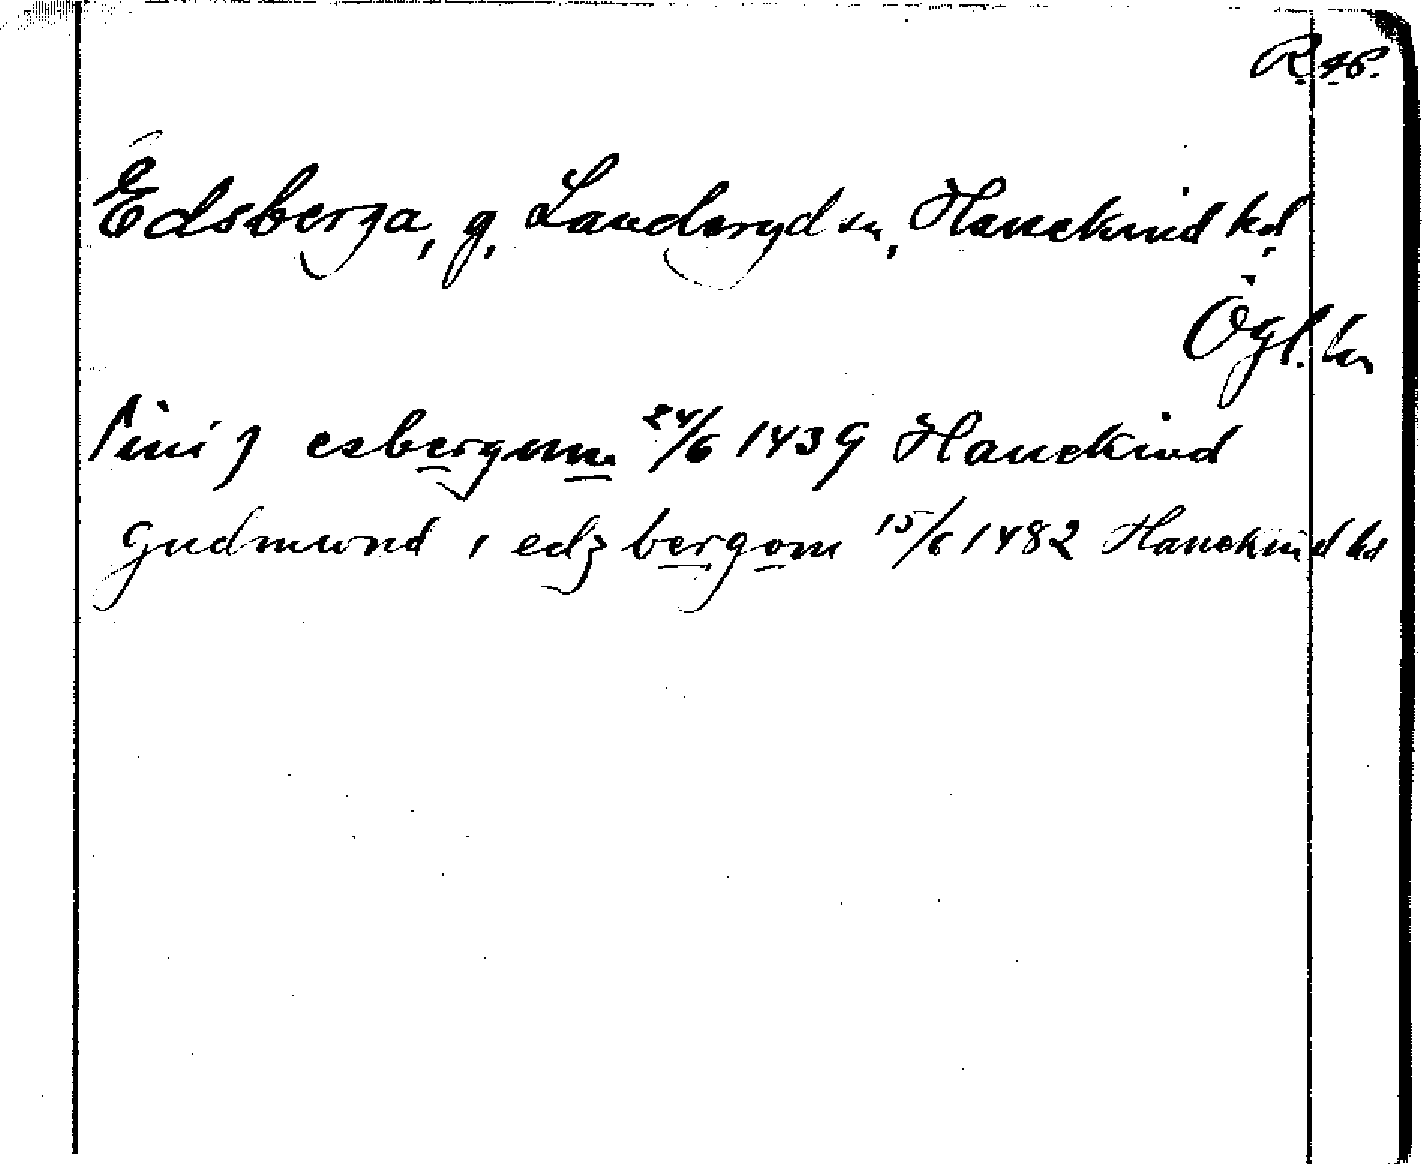 R. 46.
Edsberga, g, Landeryd sn, Hanekind hd,
Ögl. län
sini j esbergom 24/6 1439 Hanekind
gudmund i edz bergom 15/6 1482 Hanekind hd